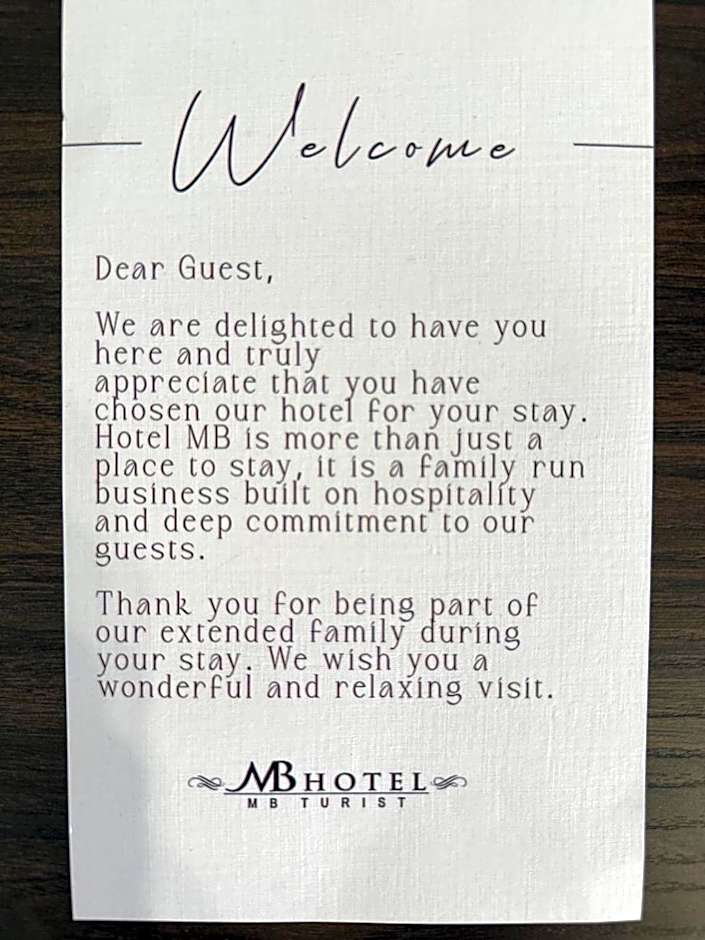 Welcome
Dear Guest,
We are delighted to have you
here and truly
appreciate that you have
chosen our hotel for your stay.
Hotel MB is more than just a
place to stay, it is a family run
business built on hospitality
and deep commitment to our
guests.
Thank you for being part of
our extended family during
your stay. We wish you a
wonderful and relaxing visit.
MB HOTEL
MB TURIST